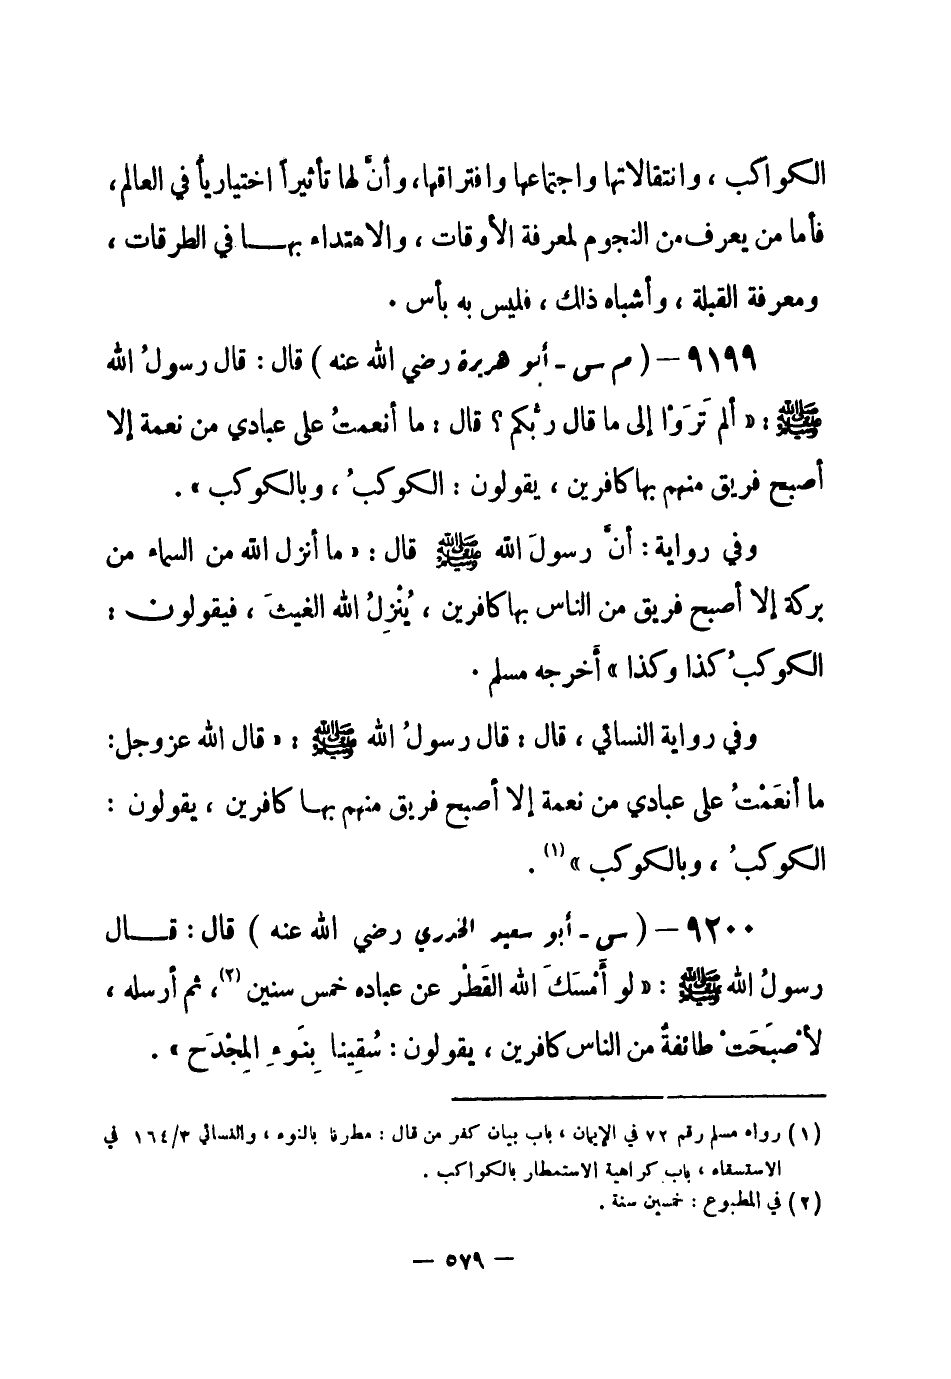 الكواكب ، وانتقالاتها واجتماعها وافتراقها، وأنَّ لها تأثيراً اختيارياً في العالم،
فأما من يعرف من النجوم لمعرفة الأوقات ، والاهتداء بهـــا في الطرقات ،
ومعرفة القبلة ، وأشباه ذلك ، فليس به بأس .
٩١٩٩ – ( م س - أبو هريرة رضي الله عنه ) قال : قال رسولُ الله
ﷺ : « ألم تَرَوْا إلى ما قال ربُّكم ؟ قال : ما أنعمتُ على عبادي من نعمة إلا
أصبح فريق منهم بها كافرين ، يقولون : الكوكبُ ، وبالكوكب » .
وفي رواية : أنَّ رسولَ الله ﷺ قال : « ما أنزل الله من السماء من
بركة إلا أصبح فريق من الناس بها كافرين ، يُنْزِلُ الله الغيثَ ، فيقولون :
الكوكبُ كذا وكذا » أخرجه مسلم .
وفي رواية النسائي ، قال : قال رسولُ الله ﷺ : « قال الله عز وجل :
ما أنعَمْتُ على عبادي من نعمة إلا أصبح فريق منهم بهـا كافرين ، يقولون :
الكوكبُ ، وبالكوكب » (١) .
٩٢٠٠ – ( س - أبو سعيد الخدري رضي الله عنه ) قال : قـــال
رسولُ الله ﷺ : « لو أَمْسَكَ الله القَطْر عن عباده خمس سنين (٢) ، ثم أرسله ،
لأصْبَحَتْ طائفةٌ من الناس كافرين ، يقولون : سُقِينا بِنَوءِ المِجْدَح » .
(١) رواه مسلم رقم ٧٢ في الإيمان ، باب بيان كفر من قال : مطرنا بالنوء ، والنسائي ١٦٤/٣ في
الاستسقاء ، باب كراهية الاستمطار بالكواكب .
(٢) في المطبوع : خمسين سنة .
– ٥٧٩ –